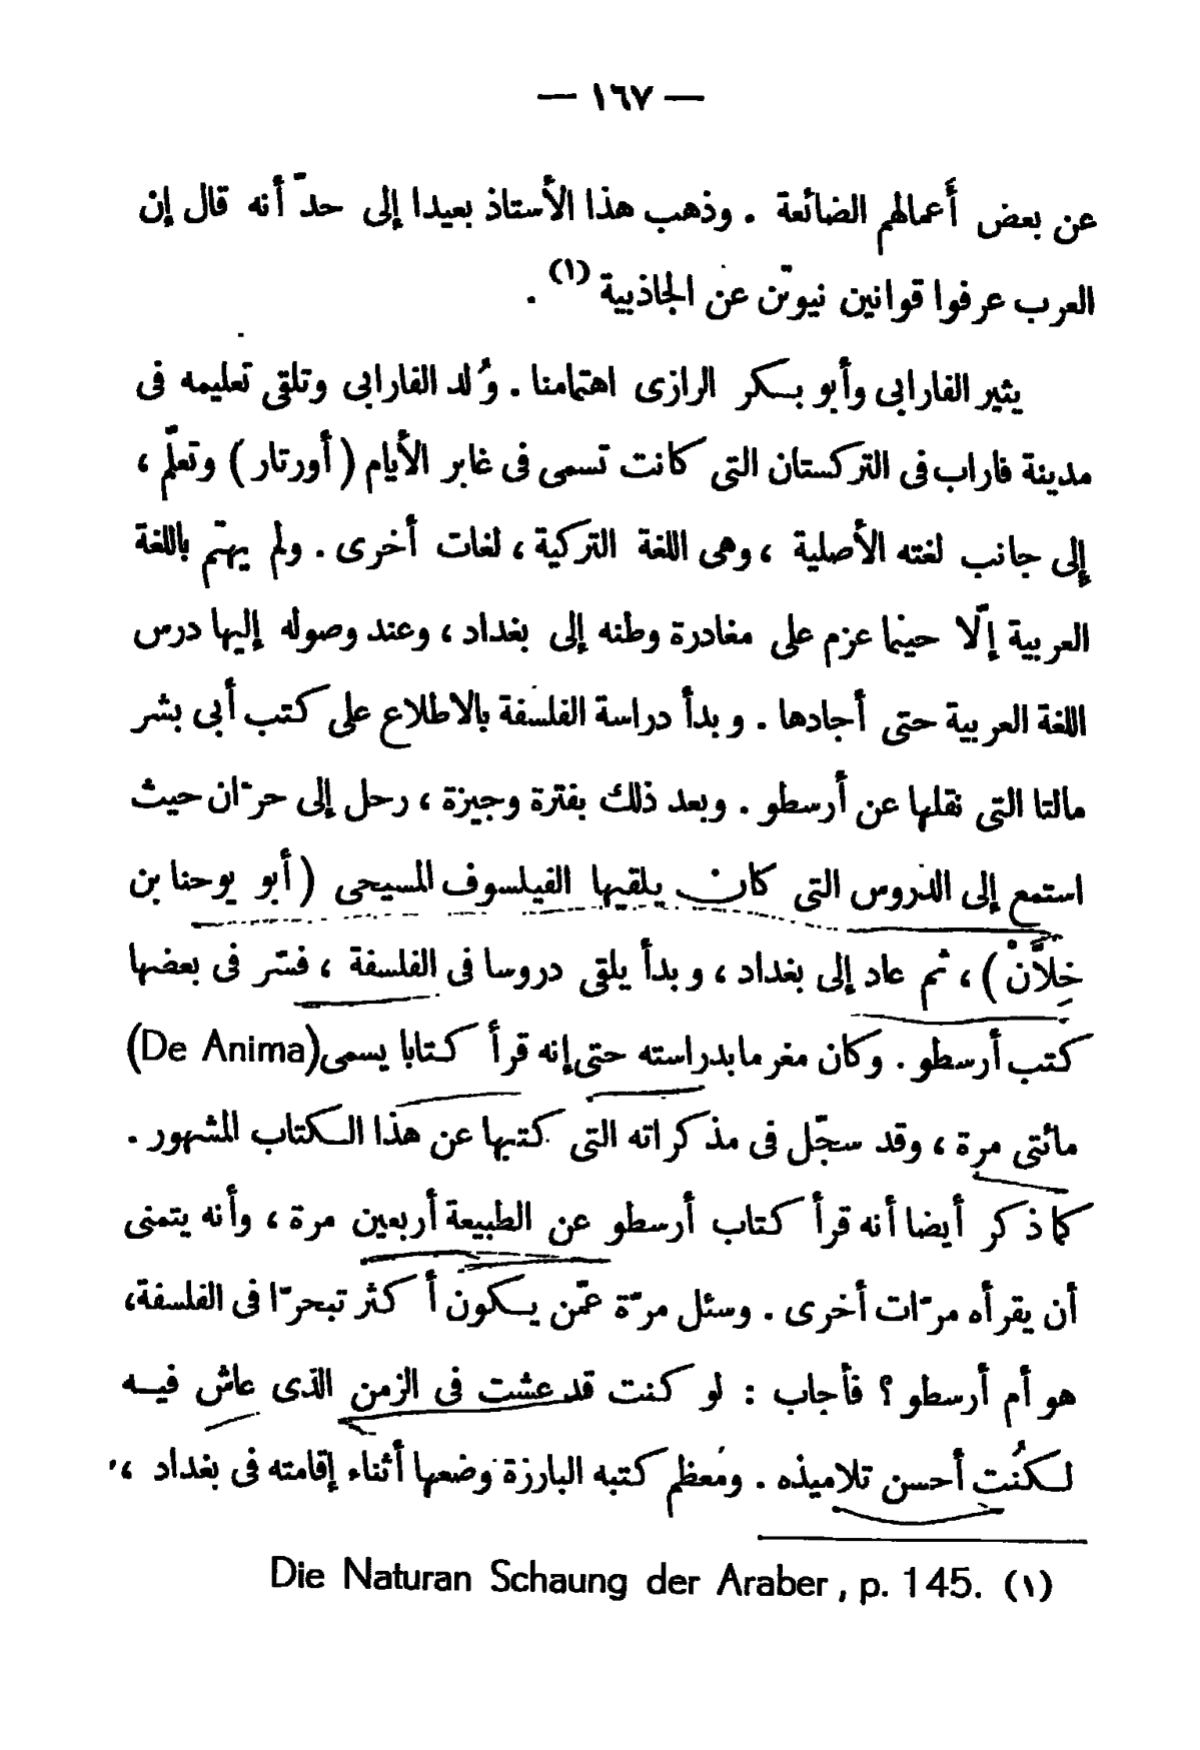 — ١٦٧ —
عن بعض أَعمالهم الضائعة . وذهب هذا الأستاذ بعيدا إلى حدّ أنه قال إن
العرب عرفوا قوانين نيوتن عن الجاذبية (١) .
يثير الفارابى وأبو بكر الرازى اهتمامنا . وُلد الفارابى وتلقى تعليمه فى
مدينة فاراب فى التركستان التى كانت تسمى فى غابر الأيام ( أورتار ) وتعلّم ،
إلى جانب لغته الأصلية ، وهى اللغة التركية ، لغات أخرى . ولم يهتم باللغة
العربية إلّا حينما عزم على مغادرة وطنه إلى بغداد ، وعند وصوله إليها درس
اللغة العربية حتى أجادها . وبدأ دراسة الفلسفة بالاطلاع على كتب أبى بشر
مالتا التى نقلها عن أرسطو . وبعد ذلك بفترة وجيزة ، رحل إلى حرّان حيث
استمع إلى الدروس التى كان يلقيها الفيلسوف المسيحى ( أبو يوحنا بن
خِلاَّنْ ) ، ثم عاد إلى بغداد ، وبدأ يلقى دروسا فى الفلسفة ، فسّر فى بعضها
كتب أرسطو . وكان مغرما بدراسته حتى إنه قرأ كتابا يسمى (De Anima)
مائتى مرة ، وقد سجّل فى مذكراته التى كتبها عن هذا الكتاب المشهور .
كما ذكر أيضا أنه قرأ كتاب أرسطو عن الطبيعة أربعين مرة ، وأنه يتمنى
أن يقرأه مرّات أخرى . وسئل مرّة عمّن يكون أكثر تبحرّا فى الفلسفة،
هو أم أرسطو ؟ فأجاب : لو كنت قد عشت فى الزمن الذى عاش فيه
لكُنت أحسن تلاميذه . ومعظم كتبه البارزة وضعها أثناء إقامته فى بغداد ،
Die Naturan Schaung der Araber , p. 145. (١)